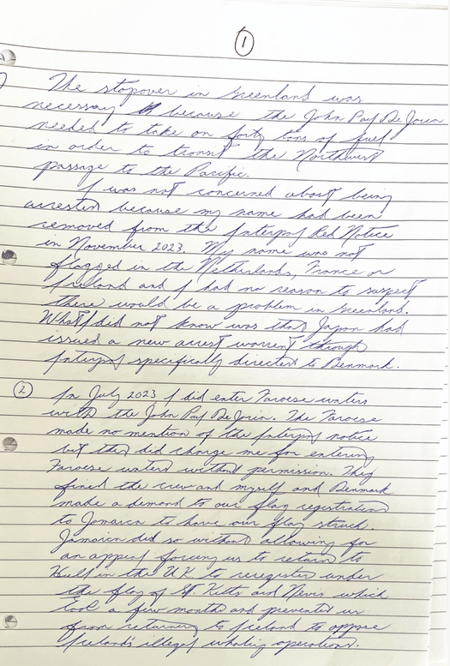 ①
The stopover in Greenland was
necessary because the John Paul DeJoria
needed to take on forty tons of fuel
in order to transit the Northwest
passage to the Pacific.
I was not concerned about being
arrested because my name had been
removed from the Interpol Red Notice
in November 2023. My name was not
flagged in the Netherlands, France or
Ireland and I had no reason to suspect
there would be a problem in Greenland.
What I did not know was that Japan had
issued a new arrest warrent through
Interpol specifically directed to Denmark.
② In July 2023 I did enter Faroese waters
with the John Paul DeJoria. The Faroese
made no mention of the Interpol notice
but they did charge me for entering
Faroese waters without permission. They
fined the crew and myself and Denmark
made a demand to our flag registration
to Jamaica to have our flag struck.
Jamaica did so without allowing for
an appeal forcing us to return to
Hull in the UK to reregister under
the flag of St Kitts and Nevis which
took a few months and prevented us
from returning to Iceland to oppose
Iceland's illegal whaling operations.